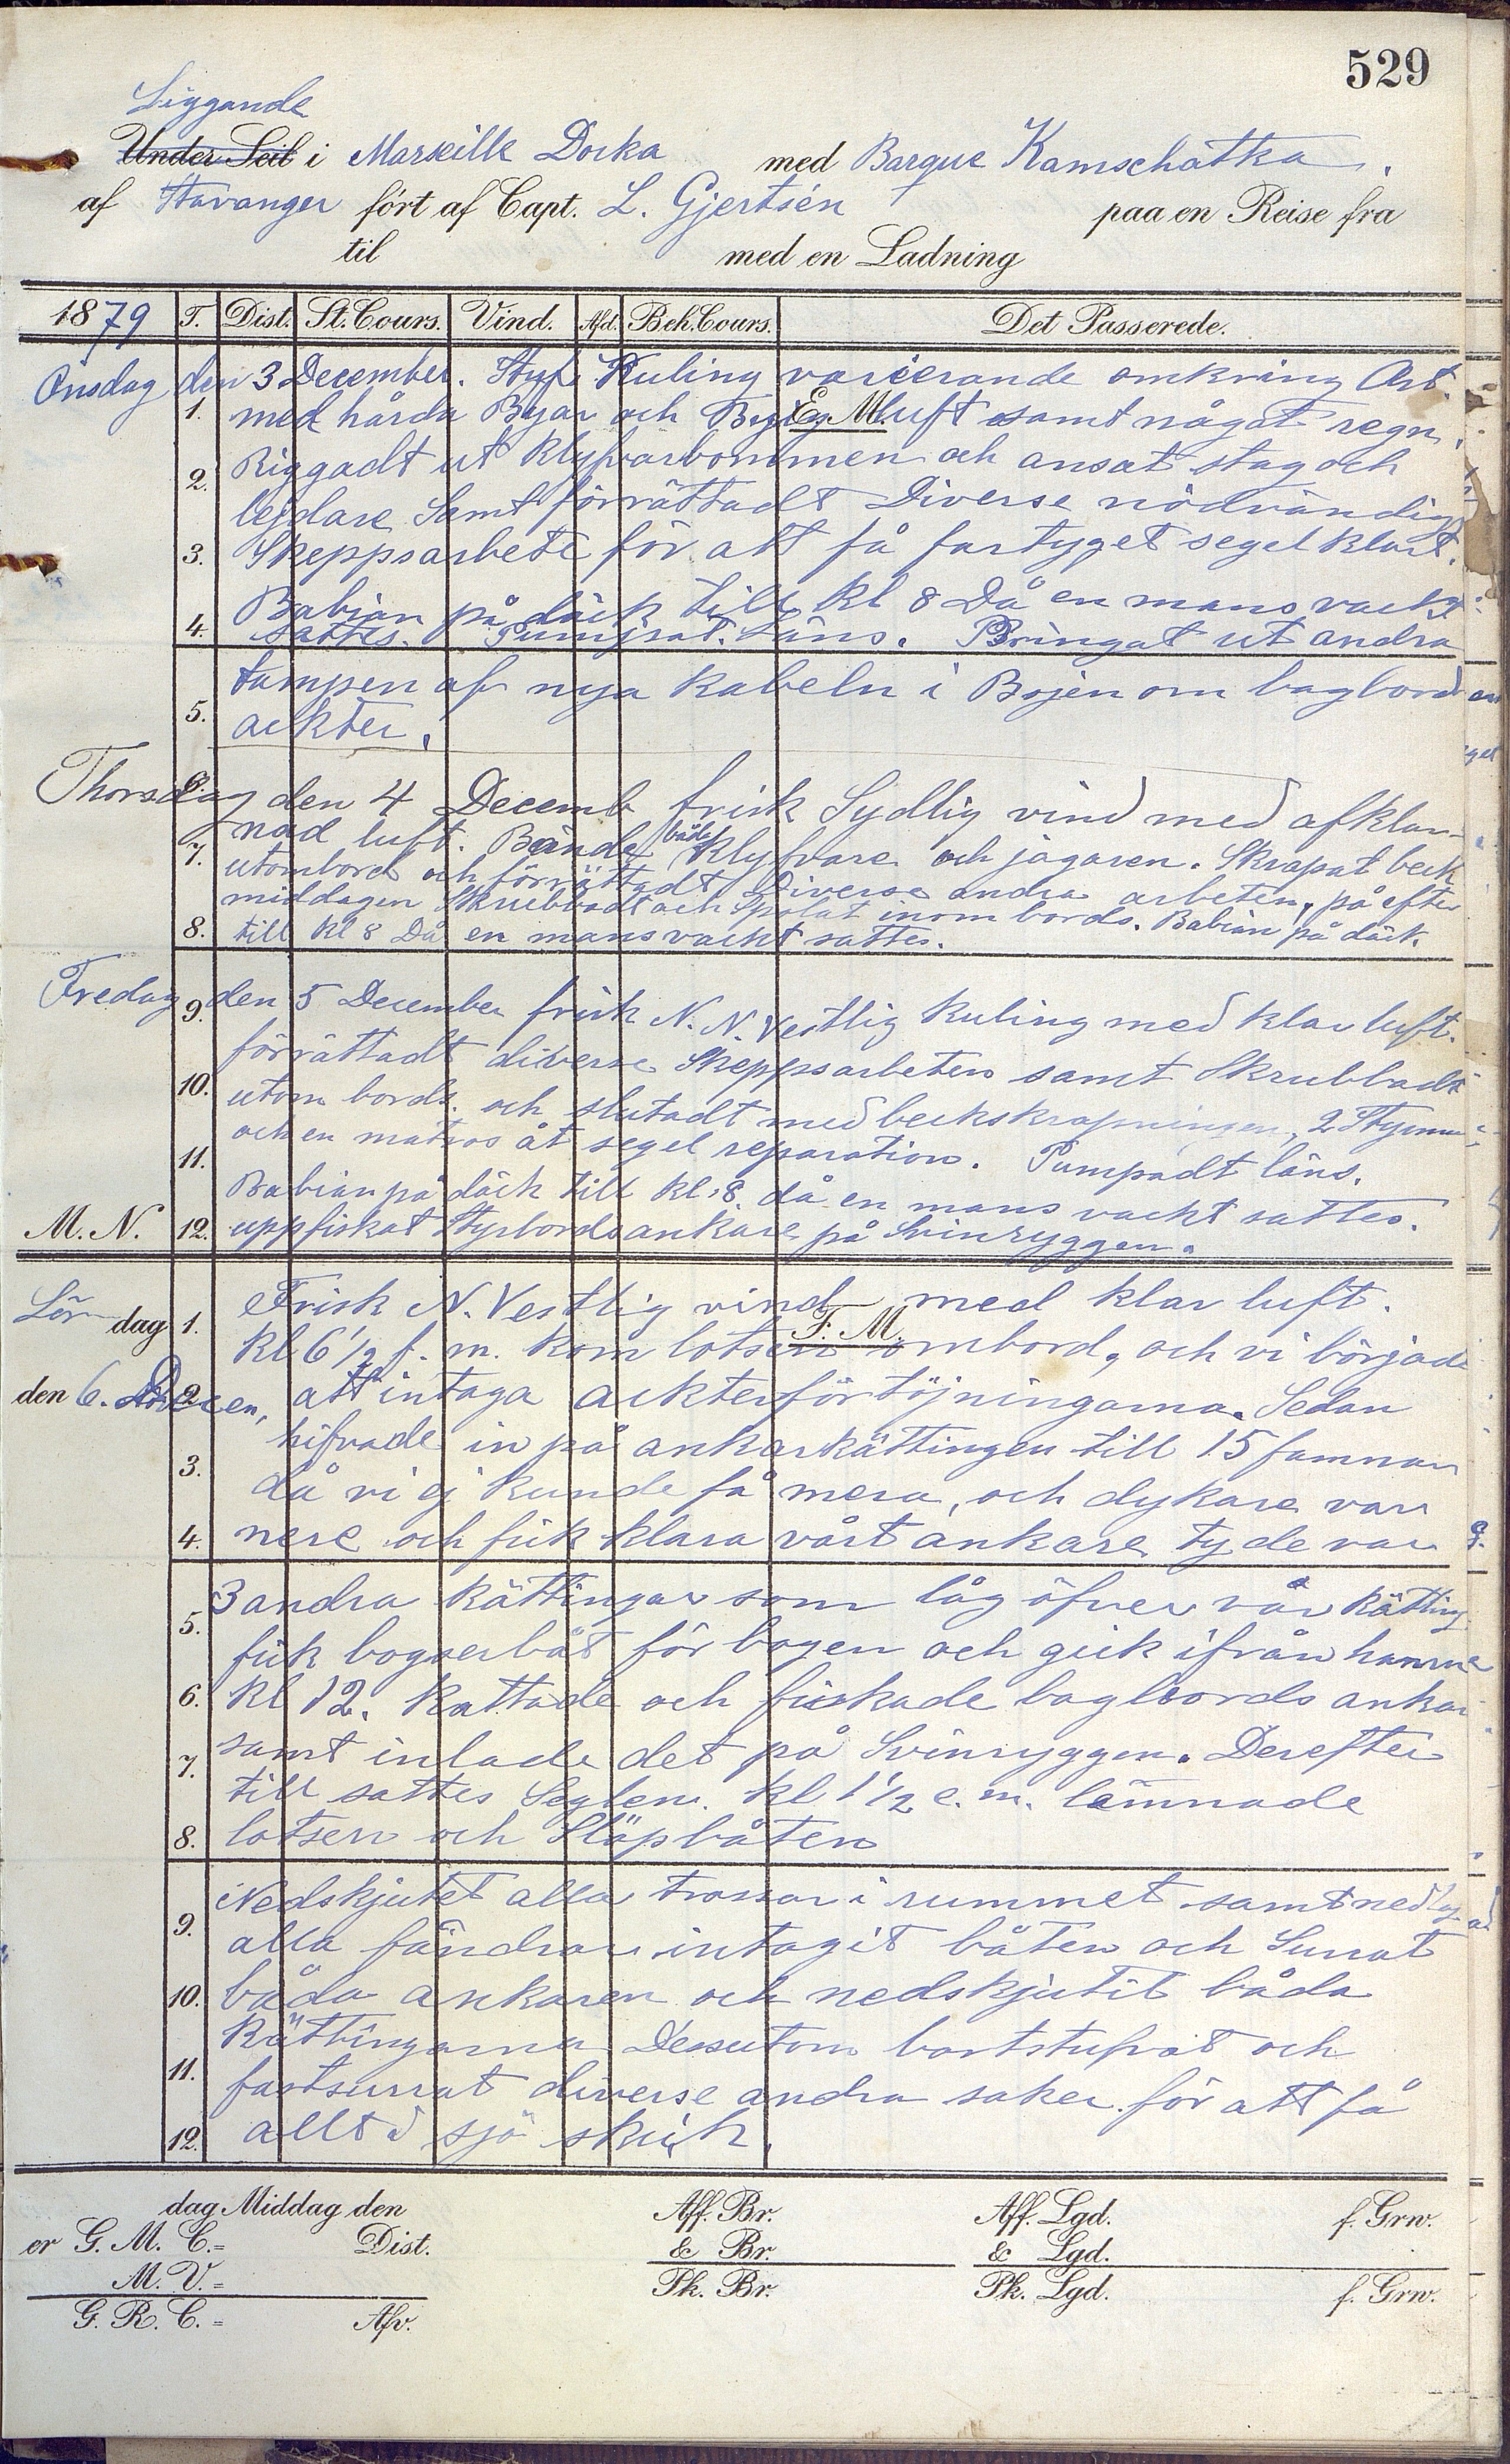 529
Liggande
Under Seil i Marseille Docka med Barque Kamschatka.
af Stavanger fört af Capt. L. Gjertsén paa en Reise fra
til med en Ladning
1879 T. Dist. St. Cours. Vind. Afd. Beh. Cours. Det Passerede.
Onsdag den 3 December. Styf Kuling varierande omkring Ost
1. med hårda Byar och Bygluft samt något regn.
E. M.
2. Riggadt ut Klyfvarbommen och ansat stag och
lejdare Samt förrättadt Diverse nödvändig
3. Skeppsarbete för att få fartyget segel klart.
Babian på däck till kl 8 Då en mans vackt
4. sattes. Pumpat. Läns. Bringat ut andra
tampen af nya kabeln i Bojen om bagbord
5. ackter.
6. Thorsdag den 4 Decemb frisk Sydlig vind med afklar-
7. nad luft. Bände både Klyfvare och jagaren. Skrapat beck
utombord och förrättadt Diverse andra arbeten, på efter
middagen Skrubbadt och Spolat inom bords. Babian på däck.
8. till kl 8 Då en mans vackt sattes.
Fredag 9. den 5 December frisk N. N. Vestlig Kuling med klar luft.
förrättadt diverse Skeppsarbeten samt Skrubbadt
10. utom bords. och slutadt med beckskrapningen, 2 Styrm
och en matros åt segel reparation. Pumpadt läns.
11. Babian på däck till kl. 8 då en mans vackt sattes.
M. N. 12. uppfiskat Styrbords ankare på Svinryggen.
Lördag 1. Frisk N. Vestlig vind med klar luft.
F. M.
Kl 6 1/2 f. m. kom lotsen ombord, och vi började
den 6. Decen, 2. att intaga ackterförtöjningarna. Sedan
hifvade in på ankarkättingen till 15 famnar
3. då vi ej kunde få mera, och dykare var
4. nere och fick klara vårt ankare ty de var
3 andra Kättingar som låg öfver vår Kätting
5. fick bogserbåt för bogen och gick ifrån hamne
6. Kl 12. Kattade och fiskade bagbords ankar
samt inlade det på Svinryggen. Derefter
7. till sattes Seglen. Kl 1 1/2 e. m. lämnade
8. lotsen och Släpbåten
Nedskjutet alla trossar i rummet samt nedlag
9. alla fändrar intagit båten och Surrat
10. båda ankaren och nedskjutit båda
Kättingarna Dessutom bortstufvat och
11. fastsurrat diverse andra saker för att få
12. allt i sjö skick.
dag Middag den Aff. Br. Aff. Lgd. f. Grw.
er G. M. C.= Dist. & Br. & Lgd.
M. V.= Pk. Br. Pk. Lgd. f. Grw.
G. R. C.= Afv.